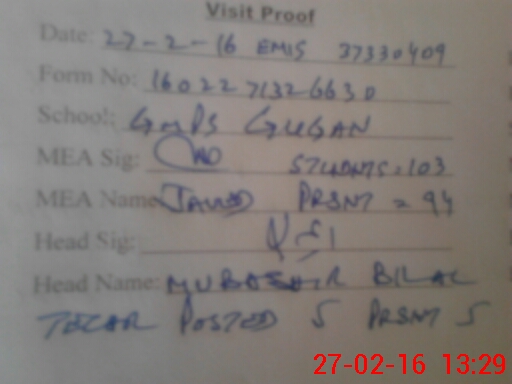 Visit Proof
Date: 27-2-16 EMIS 37330409
Form No: 1602271326630
School: GMPS GUGAN
MEA Sig: STUDNTS=103
MEA Name JAVED PRSNT = 94
Head Sig:
Head Name: MUBASHIR BILAL
TECAR POSTED 5 PRSNT 5
27-02-16 13:29